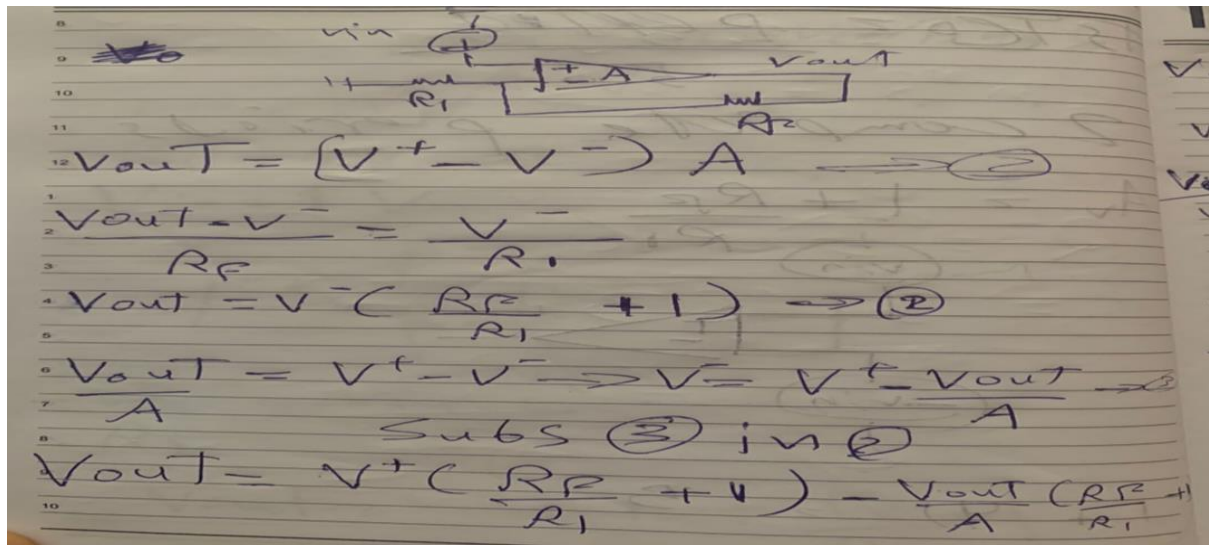 Vin
+
+ - A Vout
R1
RF
VouT = (V⁺ - V⁻) A →
VouT - V⁻ / RF = V⁻ / R1
Vout = V⁻ ( RF / R1 + 1 ) → ②
VouT / A = V⁺ - V⁻ → V⁻ = V⁺ - Vout / A → ③
Subs ③ in ②
VouT = V⁺ ( RF / R1 + 1 ) - Vout / A ( RF / R1 +1